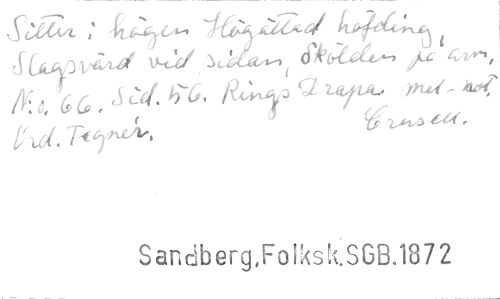 Sitter i högen Högättad höfding,
Slagsvärd vid sidan, Skölden på arm,
N:o. 66. Sid. 56. Rings Drapa. mel-not.
Ord. Tegnér. Crusell.
Sandberg,Folksk.SGB.1872